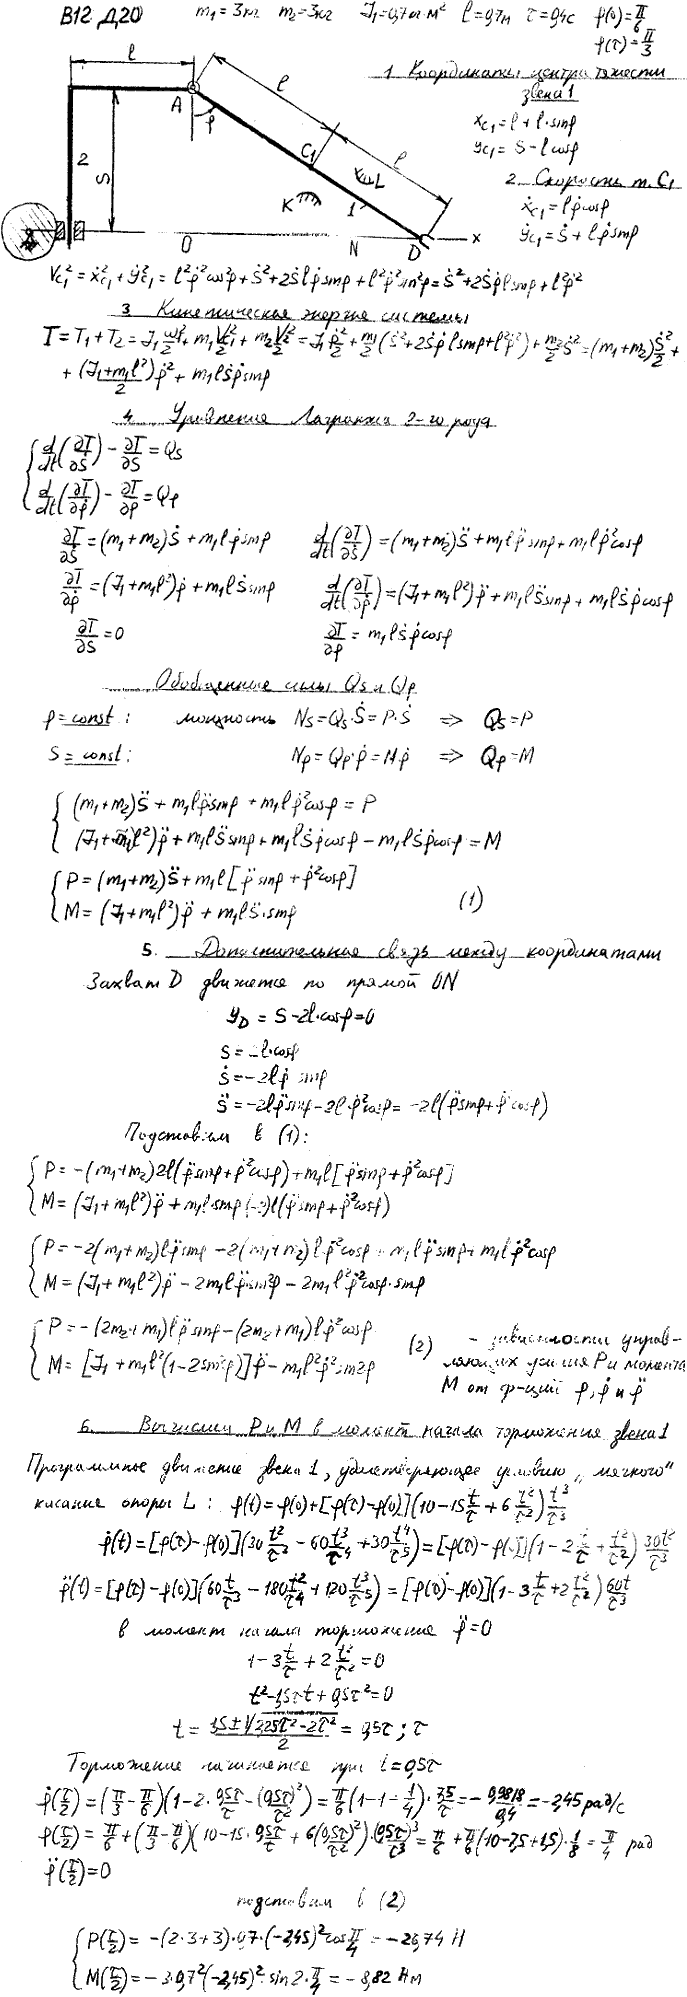 В12 Д20 m₁ = 3кг m₂ = 3кг J₁ = 0,7кг·м² l = 0,7м τ = 0,4с φ(0) = π/6
φ(τ) = π/3
1. Координаты центра тяжести
звена 1
x_C₁ = l + l·sinφ
y_C₁ = S − l cosφ
2. Скорость т. C₁
ẋ_C₁ = lφ̇cosφ
ẏ_C₁ = Ṡ + lφ̇sinφ
l l l A φ C₁ S 2 K L 1 O N D x
V²_C₁ = ẋ²_C₁ + ẏ²_C₁ = l²φ̇²cos²φ + Ṡ² + 2Ṡlφ̇sinφ + l²φ̇²sin²φ = Ṡ² + 2Ṡφ̇lsinφ + l²φ̇²
3. Кинетическая энергия системы
T = T₁ + T₂ = J₁ω₁²/2 + m₁V²_C₁/2 + m₂V₂²/2 = J₁φ̇²/2 + m₁/2(Ṡ² + 2Ṡφ̇lsinφ + l²φ̇²) + m₂/2 Ṡ² = (m₁+m₂)Ṡ²/2 +
+ (J₁+m₁l²)/2 φ̇² + m₁lṠφ̇sinφ
4. Уравнение Лагранжа 2-го рода
d/dt(∂T/∂Ṡ) − ∂T/∂S = Q_S
d/dt(∂T/∂φ̇) − ∂T/∂φ = Q_φ
∂T/∂Ṡ = (m₁+m₂)Ṡ + m₁lφ̇sinφ d/dt(∂T/∂Ṡ) = (m₁+m₂)S̈ + m₁lφ̈sinφ + m₁lφ̇²cosφ
∂T/∂φ̇ = (J₁+m₁l²)φ̇ + m₁lṠsinφ d/dt(∂T/∂φ̇) = (J₁+m₁l²)φ̈ + m₁lS̈sinφ + m₁lṠφ̇cosφ
∂T/∂S = 0 ∂T/∂φ = m₁lṠφ̇cosφ
Обобщенные силы Q_S и Q_φ
φ = const: мощность N_S = Q_S·Ṡ = P·Ṡ => Q_S = P
S = const: N_φ = Q_φ·φ̇ = Mφ̇ => Q_φ = M
(m₁+m₂)S̈ + m₁lφ̈sinφ + m₁lφ̇²cosφ = P
(J₁+m₁l²)φ̈ + m₁lS̈sinφ + m₁lṠφ̇cosφ − m₁lṠφ̇cosφ = M
P = (m₁+m₂)S̈ + m₁l[φ̈sinφ + φ̇²cosφ]
M = (J₁+m₁l²)φ̈ + m₁lS̈·sinφ (1)
5. Дополнительная связь между координатами
Захват D движется по прямой ON
y_D = S − 2l·cosφ = 0
S = 2l·cosφ
Ṡ = −2lφ̇ sinφ
S̈ = −2lφ̈sinφ − 2lφ̇²cosφ = −2l(φ̈sinφ + φ̇²cosφ)
Подставим в (1):
P = −(m₁+m₂)2l(φ̈sinφ + φ̇²cosφ) + m₁l[φ̈sinφ + φ̇²cosφ]
M = (J₁+m₁l²)φ̈ + m₁l sinφ(−2)l(φ̈sinφ + φ̇²cosφ)
P = −2(m₁+m₂)lφ̈sinφ − 2(m₁+m₂)lφ̇²cosφ + m₁lφ̈sinφ + m₁lφ̇²cosφ
M = (J₁+m₁l²)φ̈ − 2m₁lφ̈sin²φ − 2m₁l²φ̇²cosφ·sinφ
P = −(2m₂+m₁)lφ̈sinφ − (2m₂+m₁)lφ̇²cosφ
M = [J₁ + m₁l²(1−2sin²φ)]φ̈ − m₁l²φ̇²sin2φ
(2) - зависимости управ-
ляющих усилия P и момента
M от ф-ций φ, φ̇ и φ̈
6. Вычислим P и M в момент начала торможение звена 1
Программное движение звена 1, удовлетворяющее условию „мягкого"
касание опоры L: φ(t) = φ(0) + [φ(τ)−φ(0)](10 − 15t/τ + 6t²/τ²)t³/τ³
φ̇(t) = [φ(τ)−φ(0)](30t²/τ³ − 60t³/τ⁴ + 30t⁴/τ⁵) = [φ(τ)−φ(0)](1 − 2t/τ + t²/τ²)30t²/τ³
φ̈(t) = [φ(τ)−φ(0)](60t/τ³ − 180t²/τ⁴ + 120t³/τ⁵) = [φ(τ)−φ(0)](1 − 3t/τ + 2t²/τ²)60t/τ³
в момент начала торможение φ̈ = 0
1 − 3t/τ + 2t²/τ² = 0
t² − 1,5τt + 0,5τ² = 0
t = (1,5τ ± √(2,25τ² − 2τ²))/2 = 0,5τ ; τ
Торможение начинается при t = 0,5τ
φ̇(τ/2) = (π/3 − π/6)(1 − 2·0,5τ/τ − (0,5τ)²/τ²) = π/6(1 − 1 − 1/4)·7,5/τ = −0,9818/0,4 = −2,45 рад/с
φ(τ/2) = π/6 + (π/3 − π/6)(10 − 15·0,5τ/τ + 6(0,5τ)²/τ²)·(0,5τ)³/τ³ = π/6 + π/6(10 − 7,5 + 1,5)·1/8 = π/4 рад
φ̈(τ/2) = 0
подставим в (2)
P(τ/2) = −(2·3+3)·0,7·(−2,45)²cos π/4 = −26,74 Н
M(τ/2) = −3·0,7²(−2,45)²·sin2·π/4 = −8,82 Нм